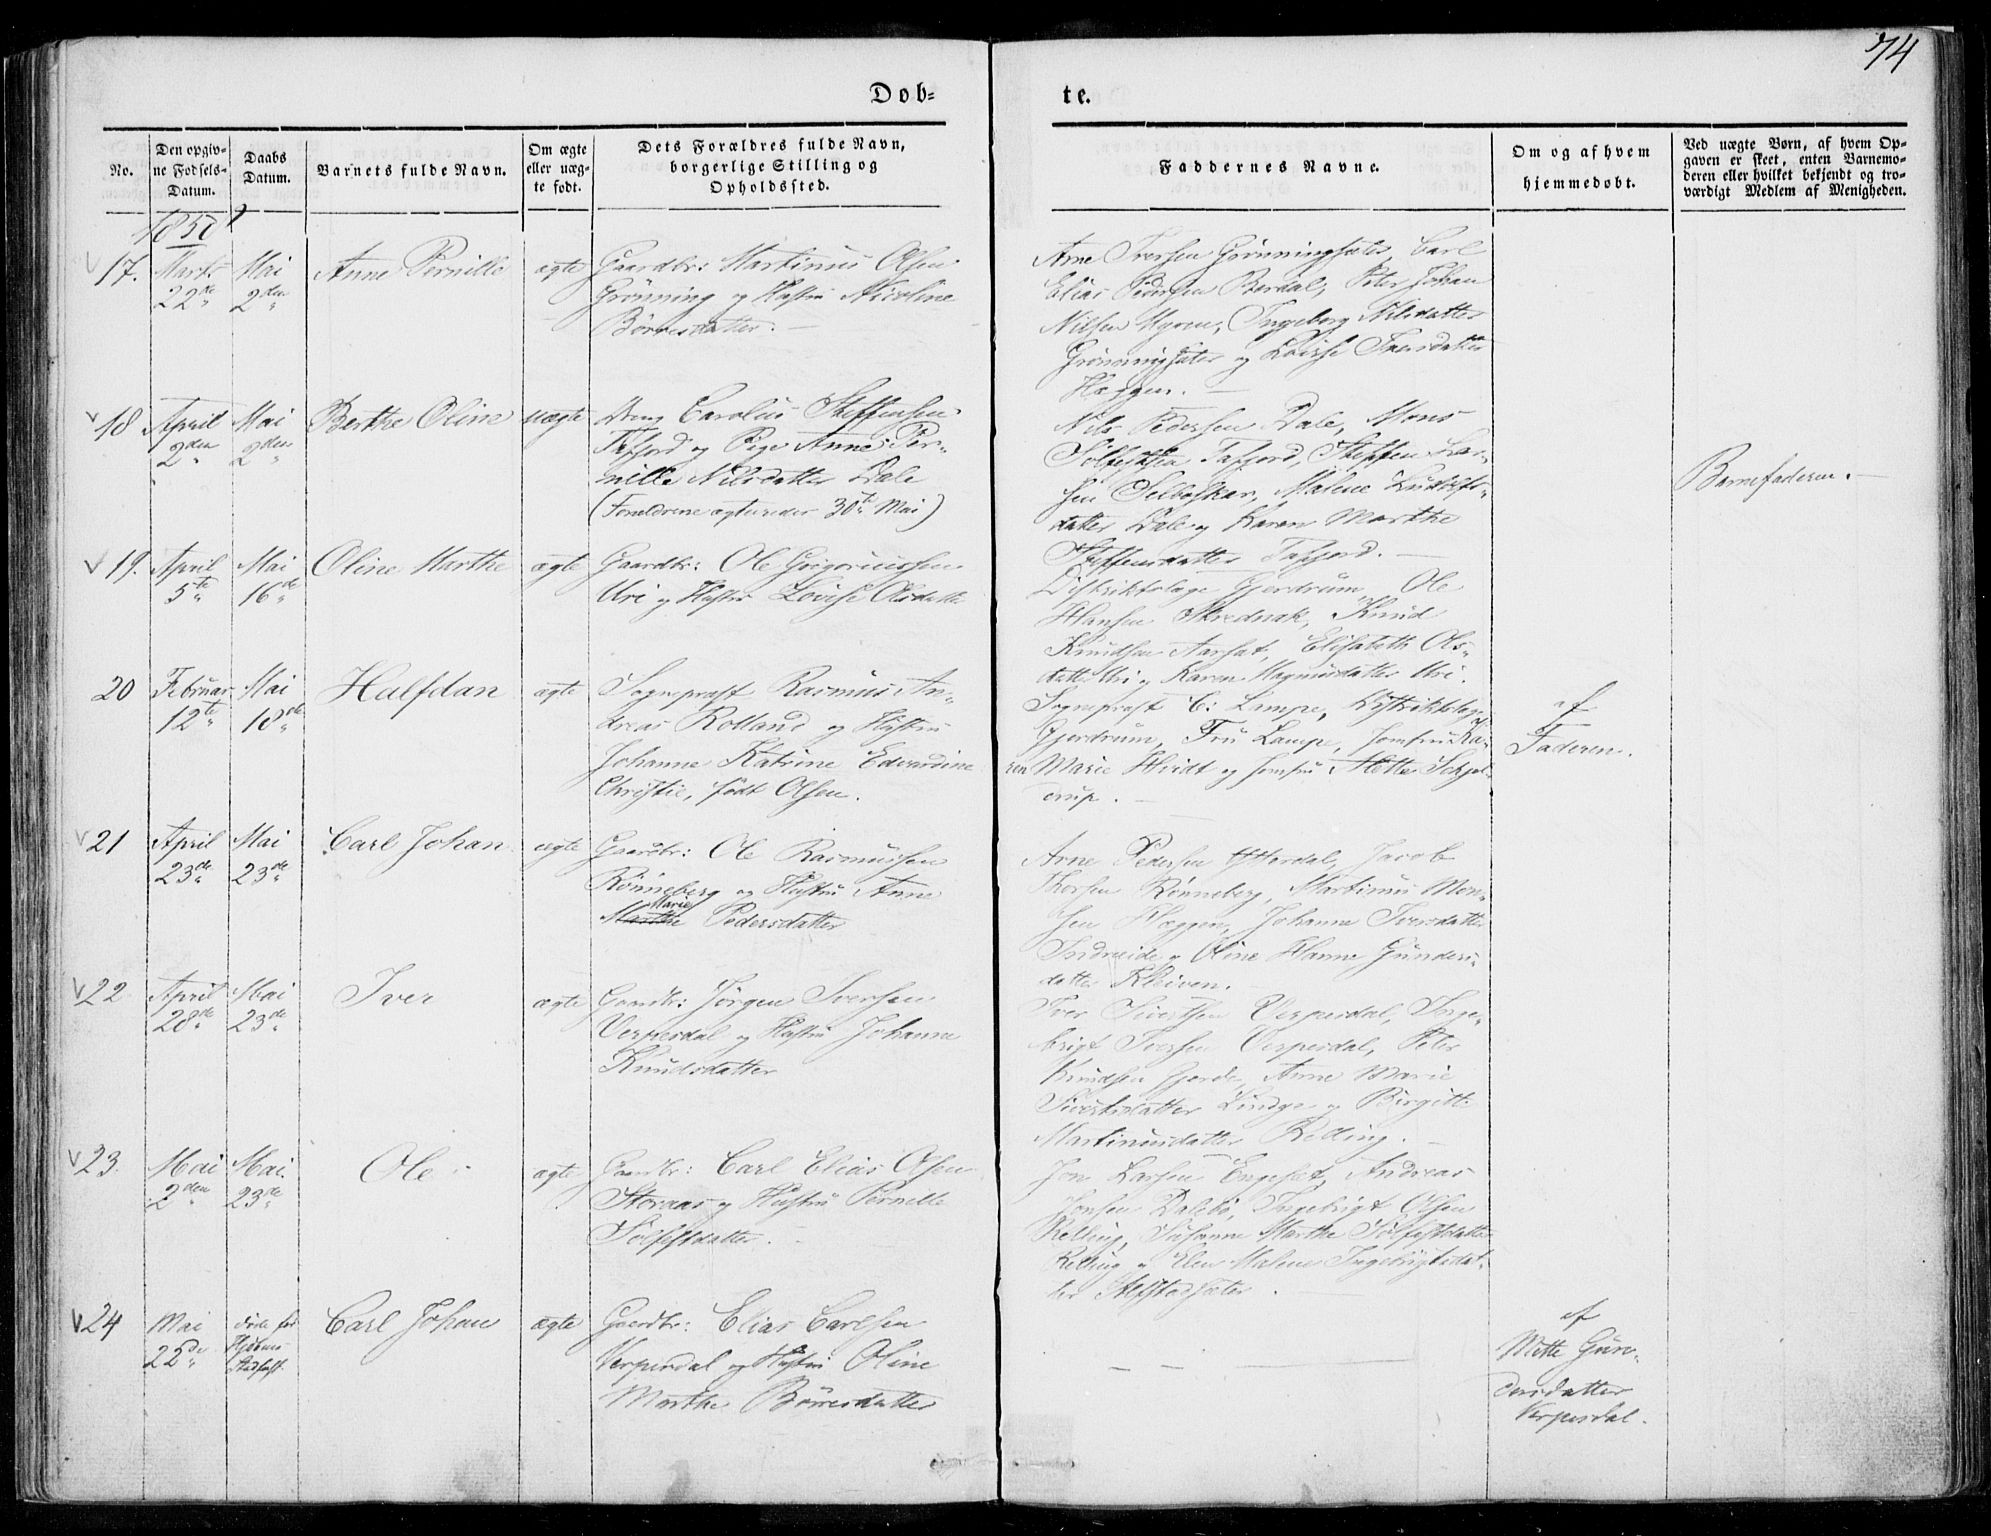 74
Døb=
te.
No.
Den opgiv=
ne Fødsels=
Datum.
Daabs
Datum.
Barnets fulde Navn.
Om ægte
eller uæg=
te født.
Dets Forældres fulde Navn,
borgerlige Stilling og
Opholdssted.
Faddernes Navne.
Om og af hvem
hjemmedøbt.
Ved uægte Børn, af hvem Op=
gaven er skeet, enten Barnemo=
deren eller hvilket bekjendt og tro=
værdigt Medlem af Menigheden.
1858
17. Marts Mai Anne Pernille ægte Gaardbr: Martinus Olsen
22de 2den Grønning og Hustru Nicoline
Børresdatter.
Arne Iversen Grønningsæter, Carl
Elias Pedersen Berdal, Peter Johan
Nilsen Myren, Ingeborg Nilsdatter
Grønningsæter og Lovise Iversdatter
Hæggen.
18 April Mai Berthe Oline uægte Ung Carolus Steffensen
2den 2den Tafjord og Pige Anne Per=
nille Nilsdatter Dale
(Forældrene ægtevieder 30te Mai)
Nils Pedersen Dale, Mons
Sølfestsen Tafjord, Steffen Lar=
sen Selboskar, Malene Ludolfs=
datter Dale og Karen Marthe
Steffensdatter Tafjord.
Barnefaderen.
19. April Mai Oline Marthe ægte Gaardbr: Ole Grigoriussen
5te 16de Uri og Hustru Lovise Olsdatter
Distriktslæge Gjerdrum, Ole
Hansen Skrednak, Knud
Knudsen Aarset, Elisabeth Ols=
datter Uri og Karen Magnusdatter Uri.
20 Februar Mai Halfdan ægte Sognepræst Rasmus An=
12te 18de dreas Rolland og Hustru
Johanne Katrine Edvardine
Christie, født Olsen.
Sognepræst C: Lampe, Distriktslæge
Gjerdrum, Fru Lampe, Jomfru Ka=
ren Marie Hvidt og Jomfru Mette Schjel=
derup.
af
Faderen.
21 April Mai Carl Johan ægte Gaardbr: Ole Rasmussen
23de 23de Rønneberg og Hustru Anne
Marie
Marthe Pedersdatter
Arne Pedersen Ytterdal, Jacob
Thorsen Rønneberg, Martinus Mon=
sen Hæggen, Johanne Iversdatter
Indreeide og Oline Hanne Gunders=
datter Kleiven.
22 April Mai Iver ægte Gaardbr: Jørgen Iversen
28de 23de Verpesdal og Hustru Johanne
Knudsdatter
Iver Sivertsen Verpesdal, Inge=
brigt Iversen Verpesdal, Peter
Knudsen Gjerde, Anne Marie
Sivertsdatter Linge og Birgitte
Martinusdatter Relling.
23. Mai Mai Ole ægte Gaardbr: Carl Elias Olsen
2den 23de Storaas og Hustru Pernille
Sølfestdatter.
Jon Larsen Engeset, Andreas
Jonsen Dalebø, Ingebrigt Olsen
Relling, Susanne Marthe Sølfestdatter
Relling og Elen Malene Ingebrigtsdat=
ter Alstadsæter.
24 Mai døde før Carl Johan ægte Gaardbr: Elias Carlsen
22de Stadfæst. Verpesdal og Hustru Oline
Marthe Børresdatter
af
Mette Gun=
dersdatter
Verpesdal.